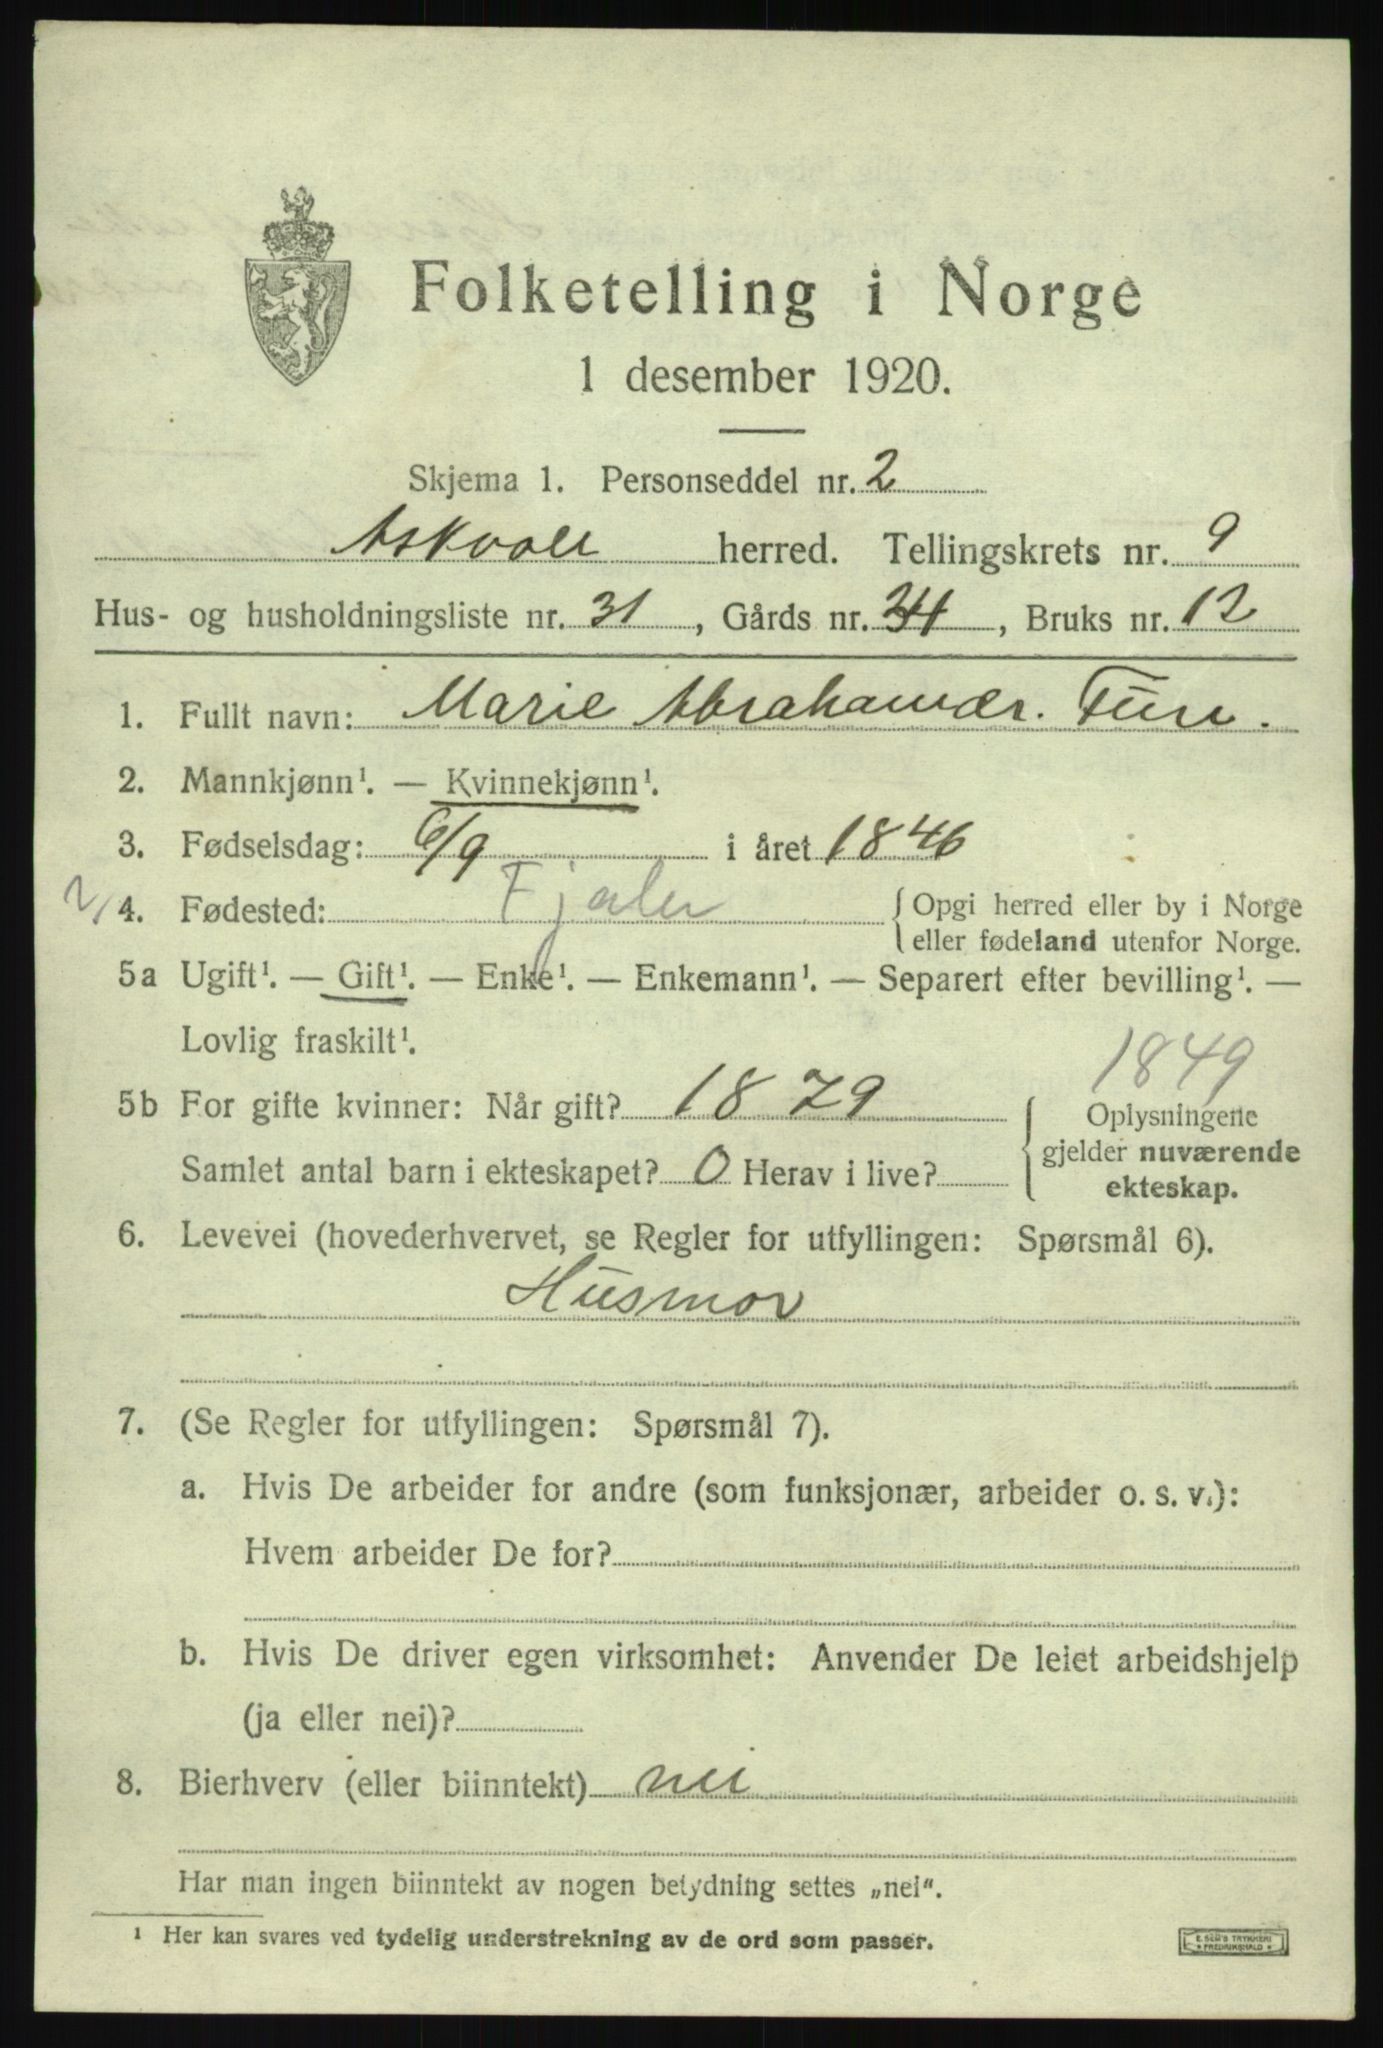 Folketelling i Norge
1 desember 1920.
Skjema 1. Personseddel nr. 2
Askvoll herred. Tellingskrets nr. 9
Hus- og husholdningsliste nr. 31, Gårds nr. 34, Bruks nr. 12
1. Fullt navn: Marie Abrahamsdr. Fure.
2. Mannkjønn¹. — Kvinnekjønn¹.
3. Fødselsdag: 6/9 i året 1846
4. Fødested: Fjaler { Opgi herred eller by i Norge
eller fødeland utenfor Norge.
5a Ugift¹. — Gift¹. — Enke¹. — Enkemann¹. — Separert efter bevilling¹. —
Lovlig fraskilt¹.
1849
5b For gifte kvinner: Når gift? 1879
Samlet antal barn i ekteskapet? 0 Herav i live?
Oplysningene
gjelder nuværende
ekteskap.
6. Levevei (hovederhvervet, se Regler for utfyllingen: Spørsmål 6).
Husmor
7. (Se Regler for utfyllingen: Spørsmål 7).
a. Hvis De arbeider for andre (som funksjonær, arbeider o. s. v.):
Hvem arbeider De for?
b. Hvis De driver egen virksomhet: Anvender De leiet arbeidshjelp
(ja eller nei)?
8. Bierhverv (eller biinntekt) nei
Har man ingen biinntekt av nogen betydning settes „nei“.
¹ Her kan svares ved tydelig understrekning av de ord som passer.
E. SEM'S TRYKKERI
* FREDRIKSHALD *